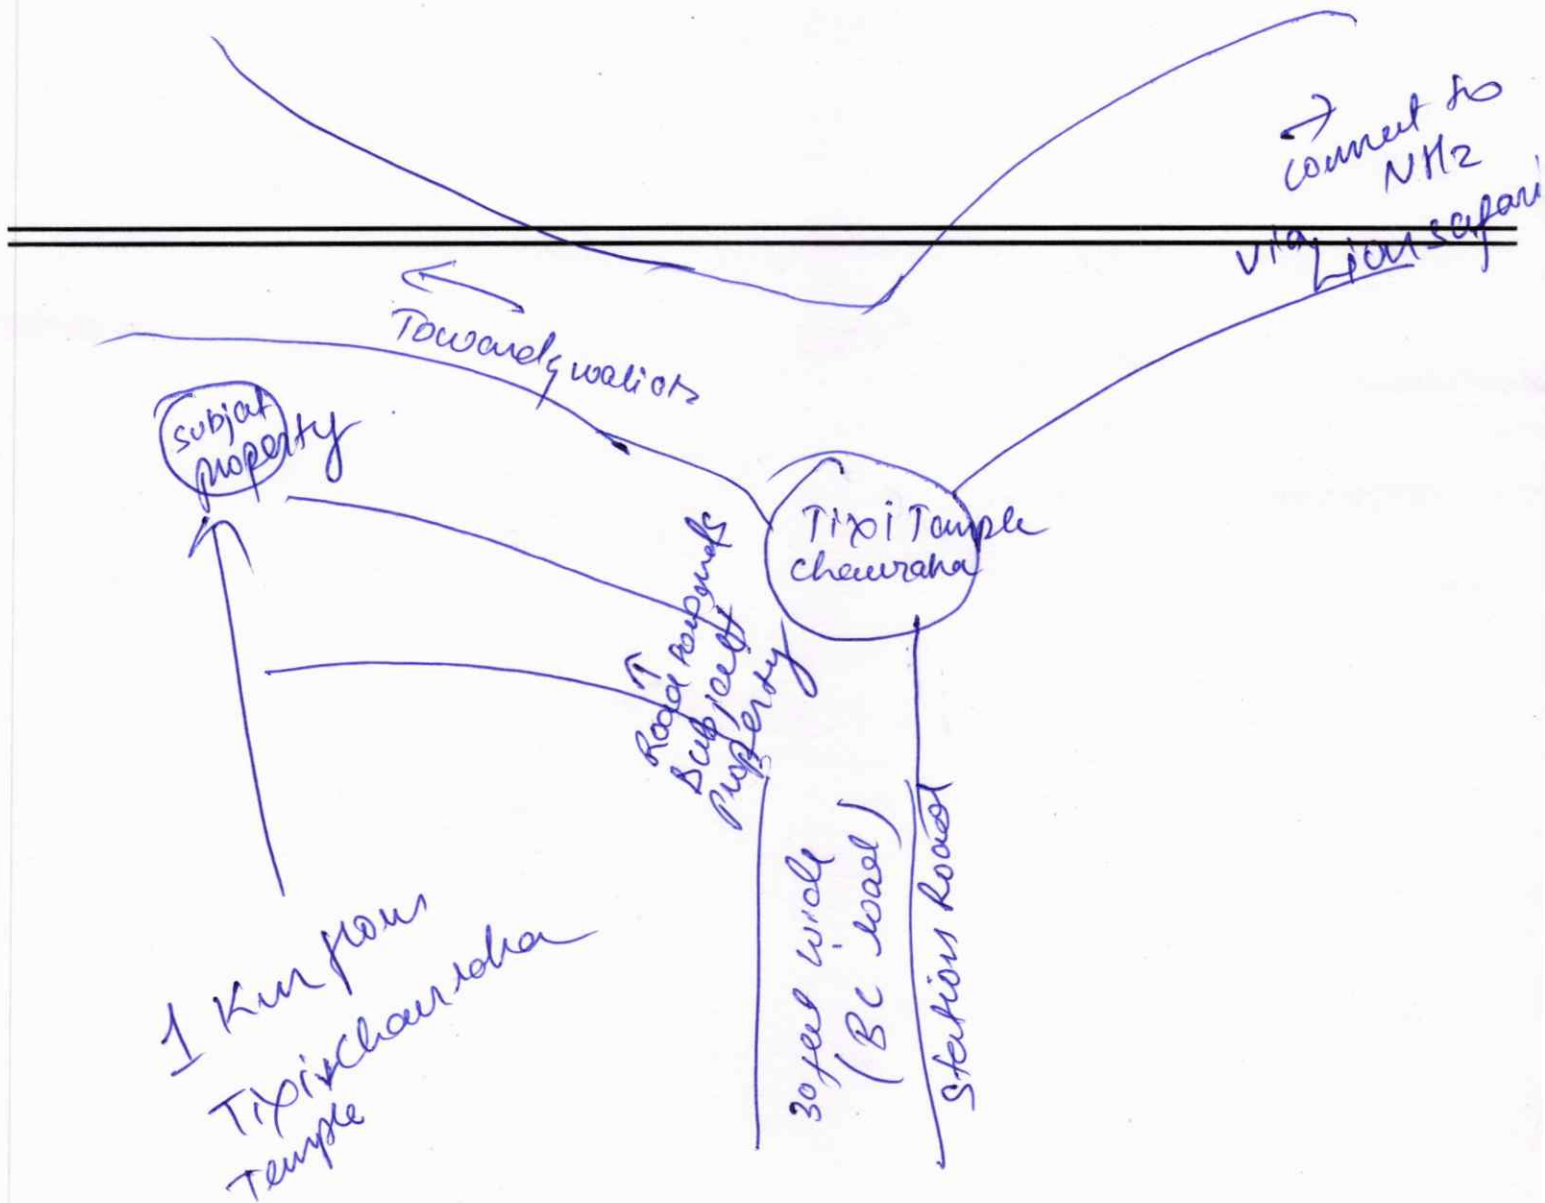 →
connect to
NH2
via Lion safari
←
Towards gwalior
subjat
property
Tixi Temple
chauraha
↑
Road towards
Subject
Property
30 feet wide
(BC road)
Station Road
1 Km from
Tixi chauraha
Temple